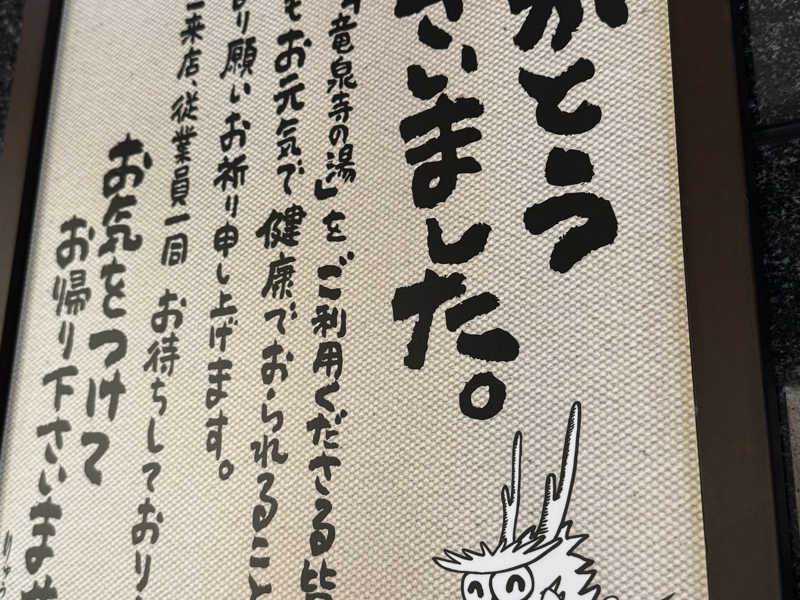 がとう
ざいました。
「竜泉寺の湯」を ご利用くださる皆
もお元気で 健康でおられること
より願いお祈り申し上げます。
ご来店、従業員一同 お待ちしており
お気をつけて
お帰り下さいませ
りゅう